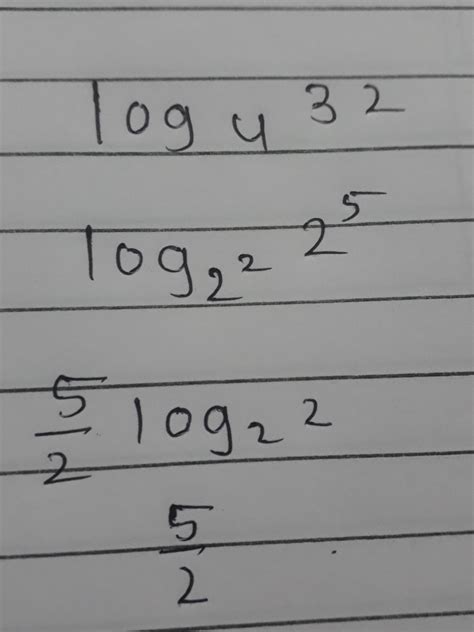 log₄ 32
log₂² 2⁵
5/2 log₂ 2
5/2